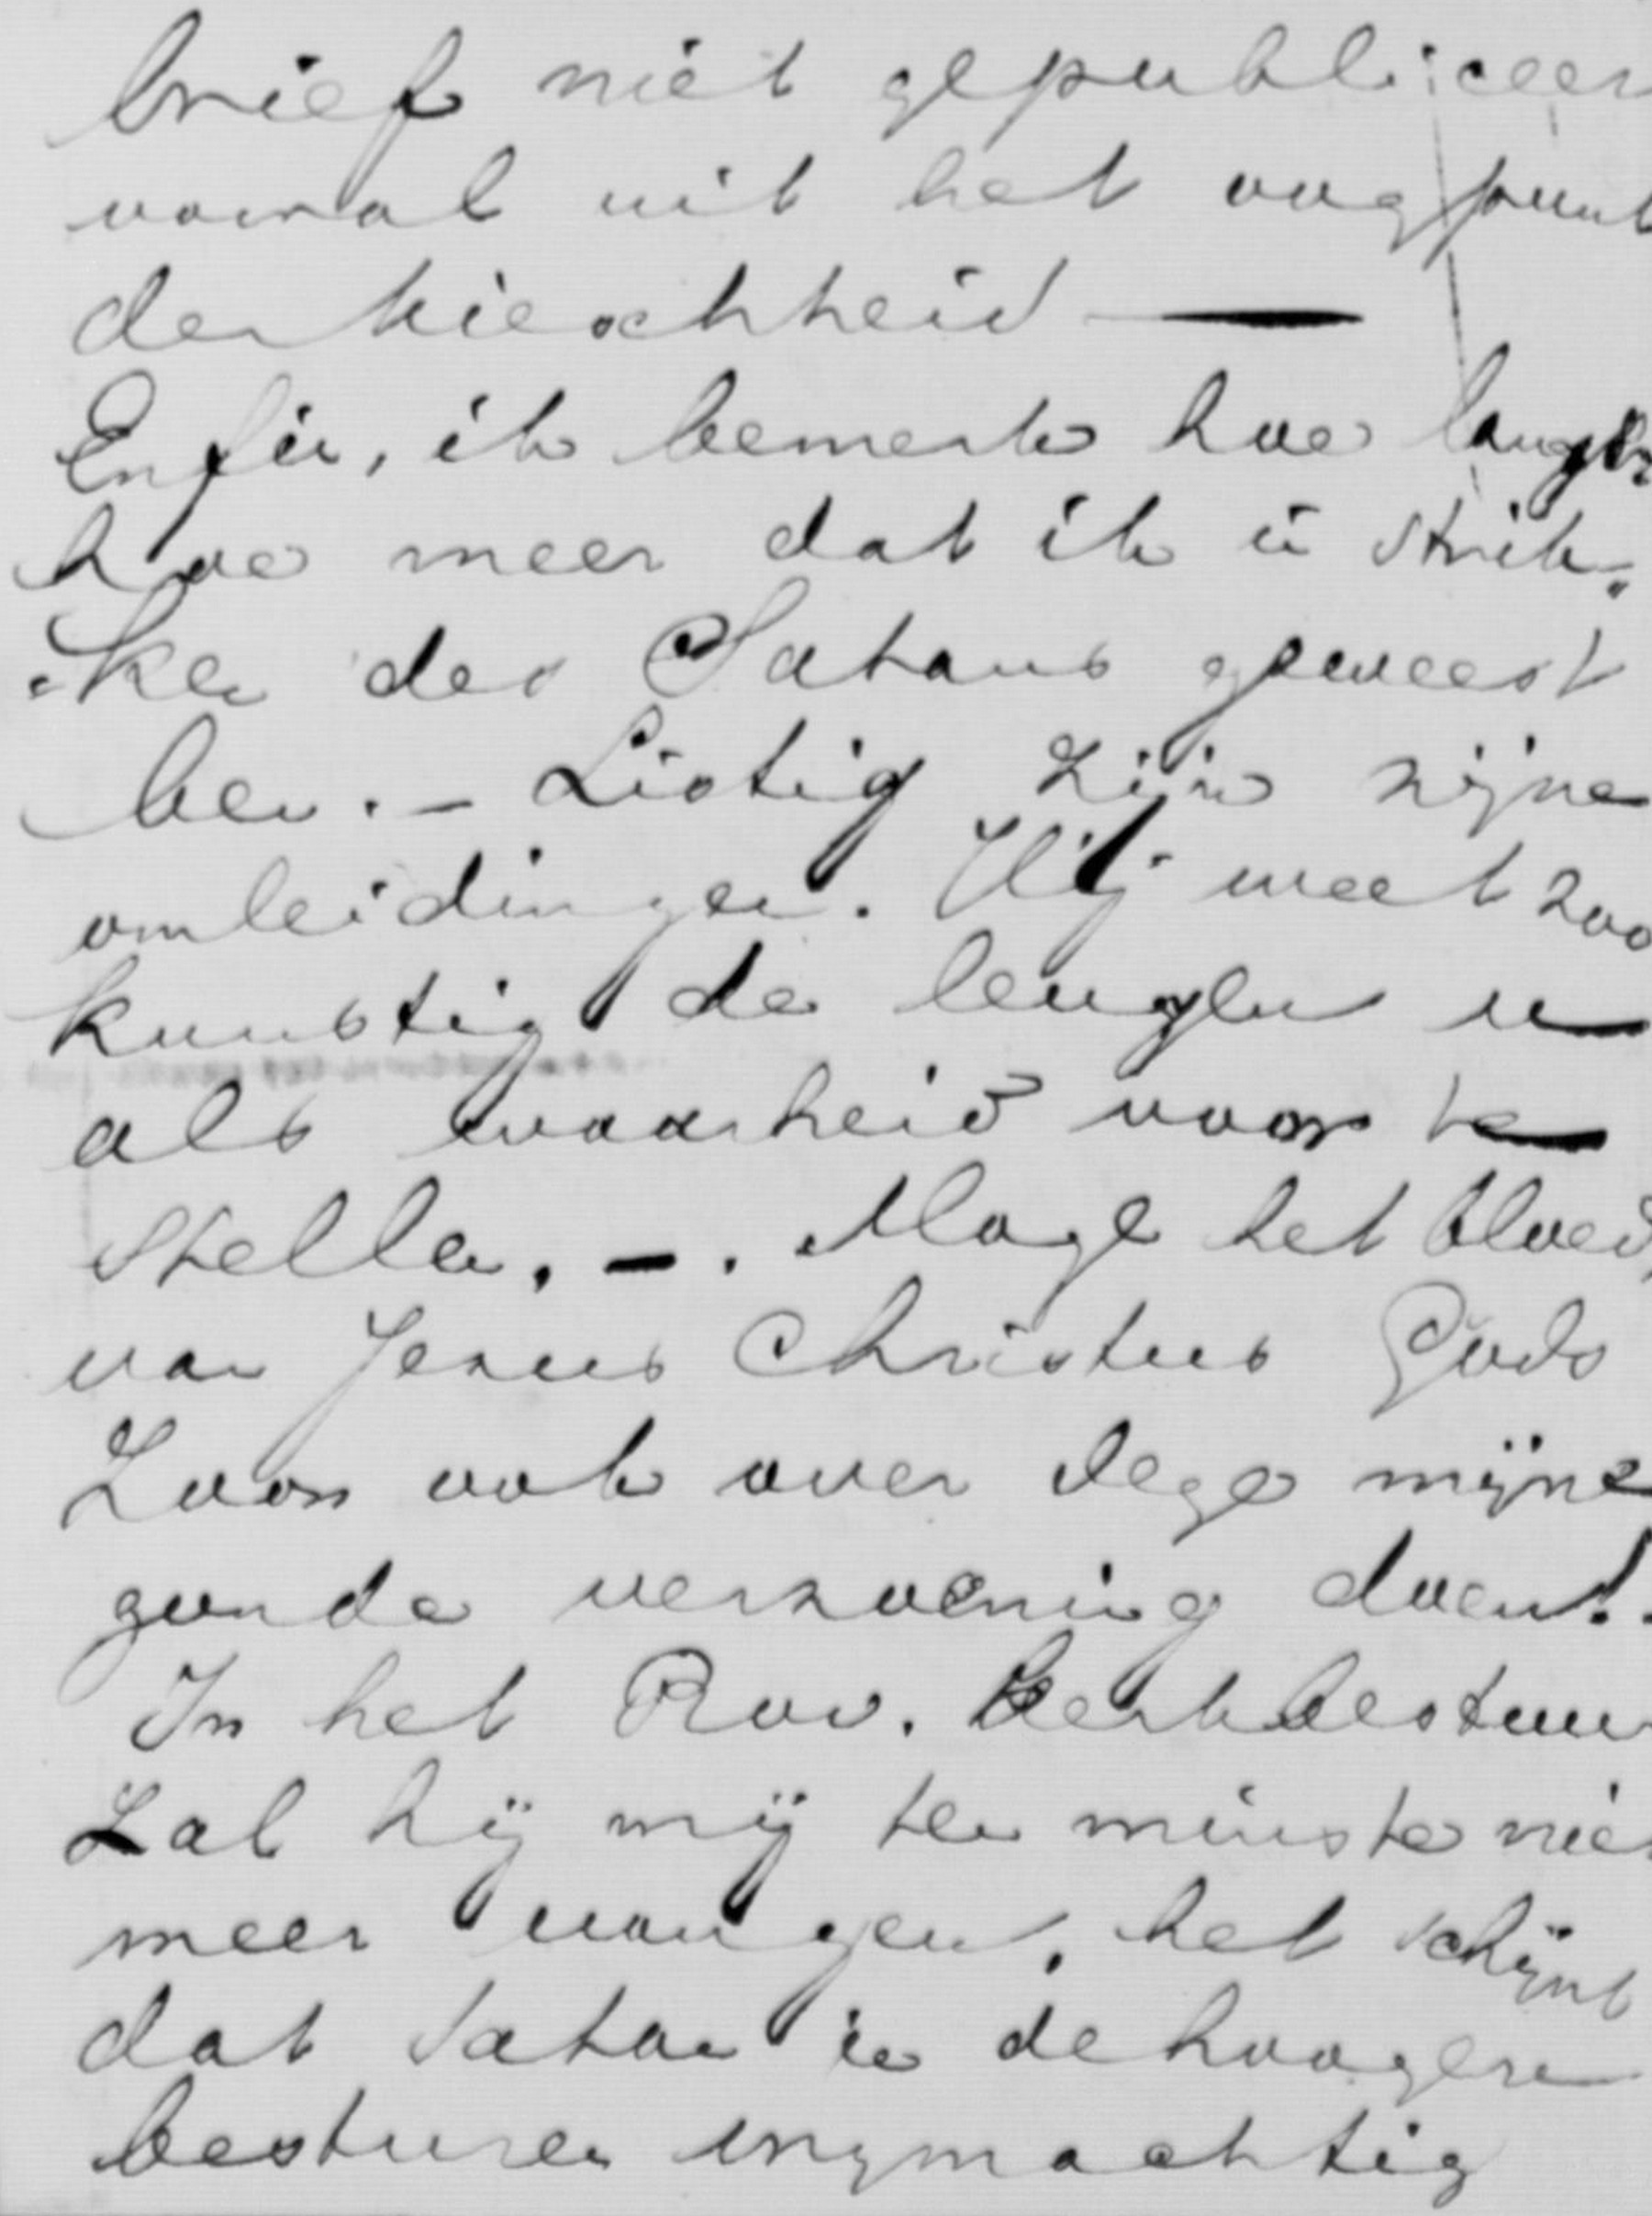 brief niet gepubliceer
vooral uit het oogpunt
der kieschheid —
Enfin, ik bemerk hoe langer
hoe meer dat ik in strik-
-ken des Satans geweest
ben. - Listig zijn zijne
omleidingen. Hij weet zoo
kunstig de leugen u
als waarheid voor te
stellen. -. Moge het bloed,
van Jezus Christus Gods
Zoon ook over deze mijne
zonde verzoening doen!.
In het Prov. Kerkbestuur
Zal hij mij ten minste niet
meer vangen, het schijnt
dat Satan in de hoogere
besturen ingmachtig